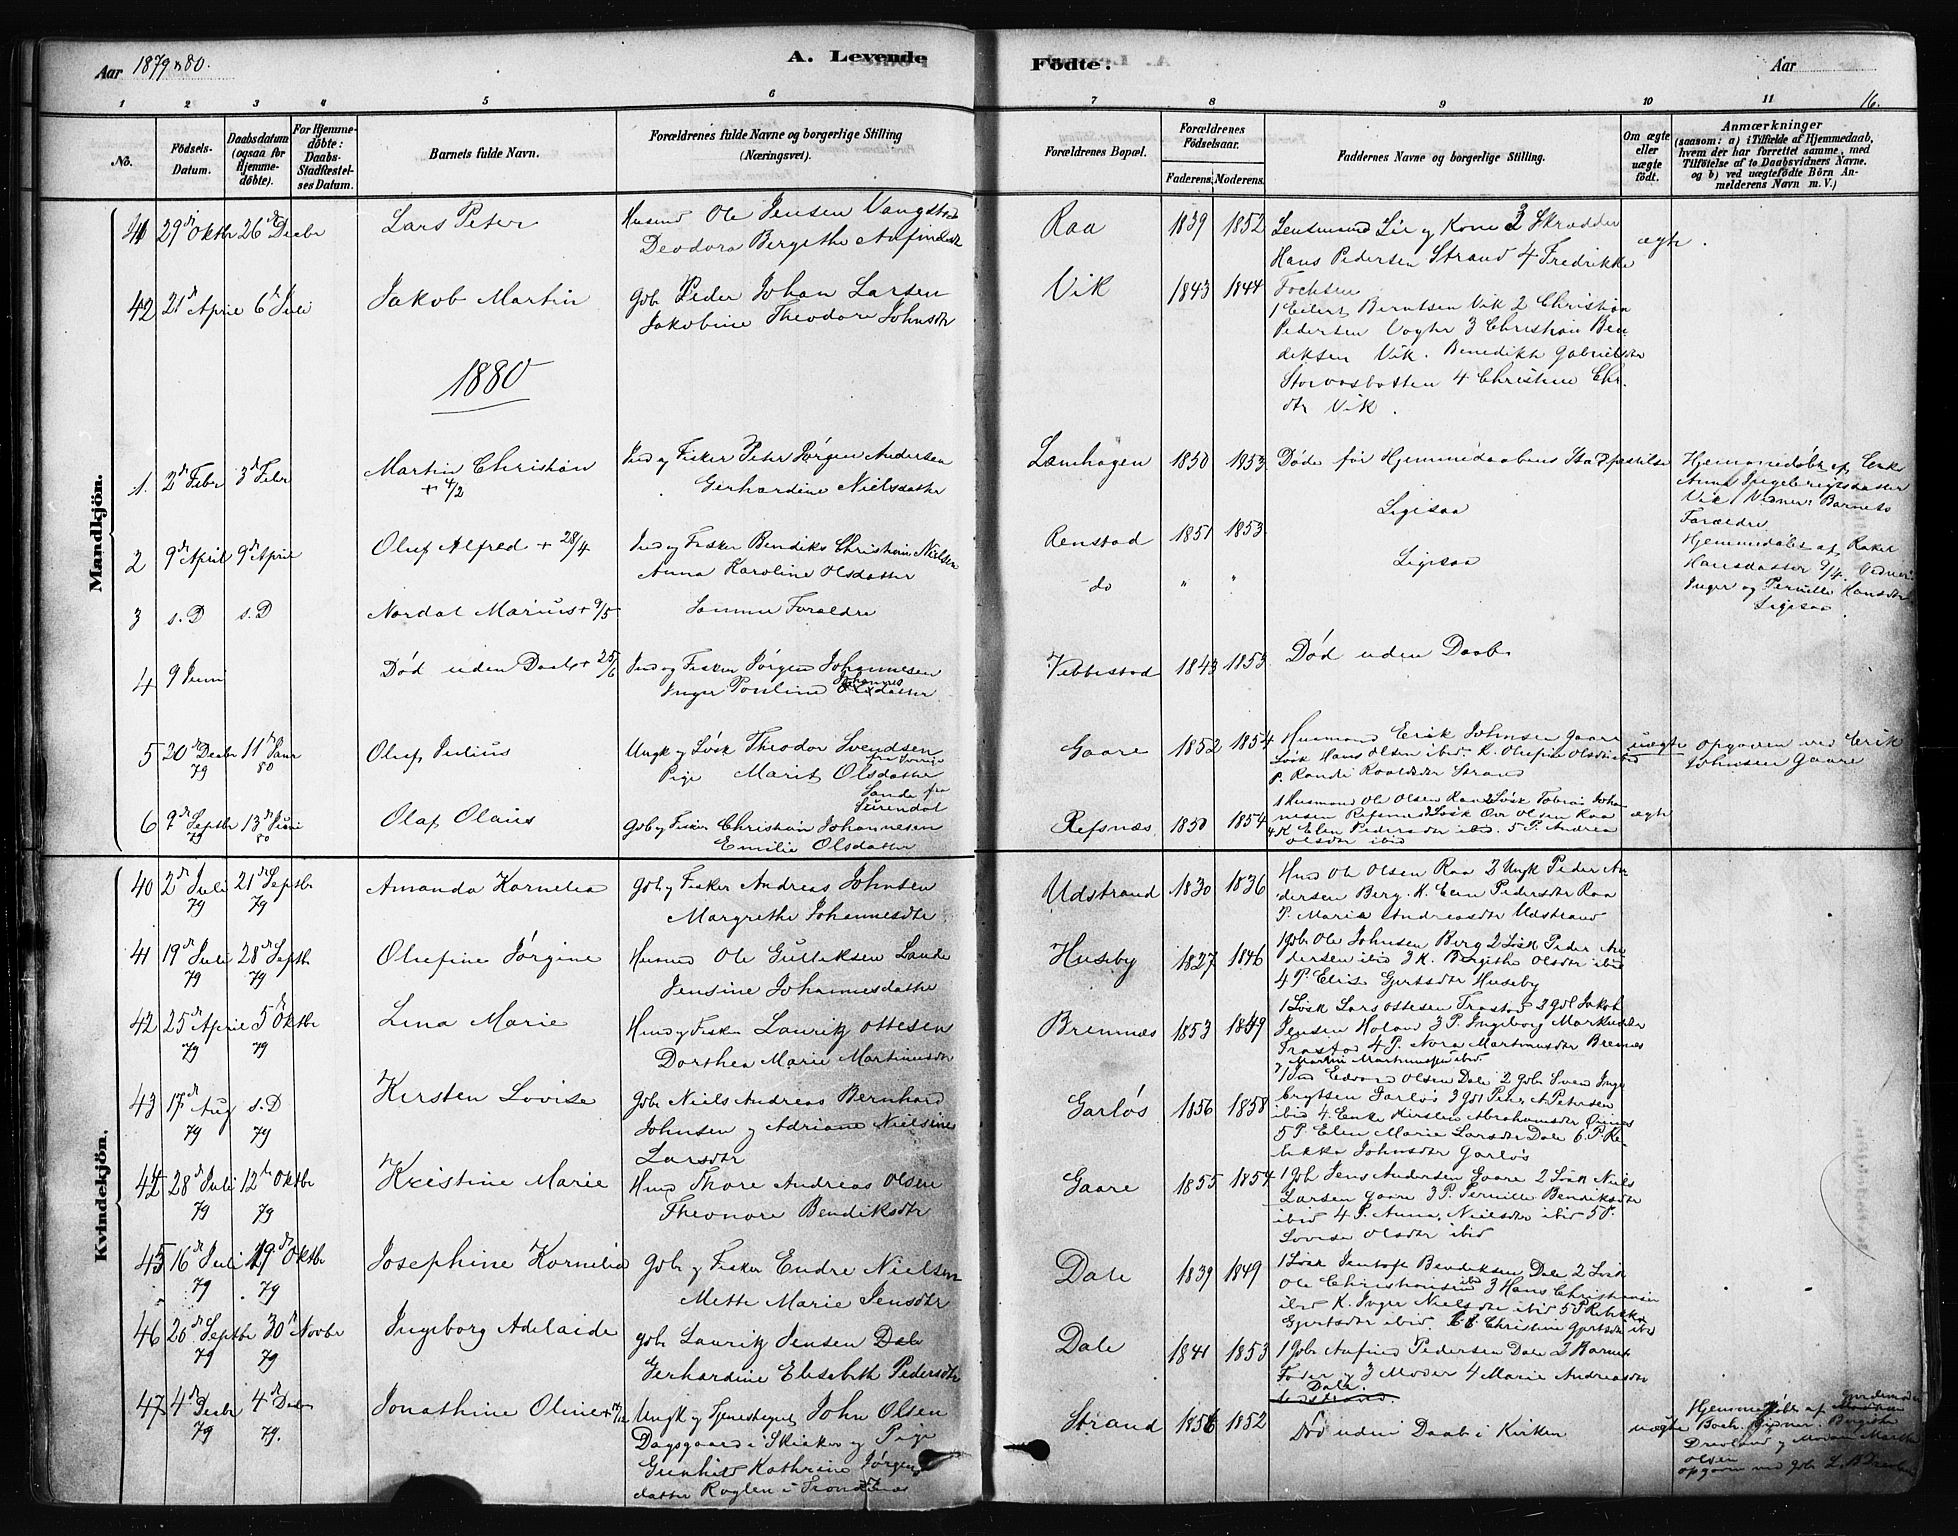 Aar 1879 & 80.
A. Levende
Födte.
Aar
1 2 3 4 5 6 7 8 9 10 11 16.
No.
Födsels-Datum.
Daabsdatum (ogsaa for Hjemme-döbte).
For Hjemme-döbte: Daabs-Stadfæstel-ses Datum.
Barnets fulde Navn.
Forældrenes fulde Navne og borgerlige Stilling (Næringsvei).
Forældrenes Bopæl.
Forældrenes Födselsaar.
Faderens. Moderens.
Faddernes Navne og borgerlige Stilling.
Om ægte eller uægte födt.
Anmærkninger (saasom: a) i Tilfælde af Hjemmedaab, hvem der har forrettet samme, med Tilföielse af to Daabsvidners Navne. og b) ved uægtefödte Börn An-melderens Navn m. V.)
Mandkjön.
41 29de Oktbr 26de Decbr Lars Peter
Husmd Ole Jensen Vangstad
Deodora Bergithe
Raa 1839 1852
Lensmand Lie og Kone 3 Skrædder
Hans Pedersen Strand 4 Fredrikke
Fochsen
ægte
42 21de April 6te Juli Jakob Martin
Gbr Peder Johan Larsen
Jakobine Theodore Johnsdtr
Vik 1843 1844
1 Eilert Berntsen Vik 2 Christian
Pedersen Vogter 3 Christian Ben
diksen Vik. Benedikte Gabrielsdtr
4 Christine Chr.
dtr Vik.
1880
1. 2de Febr 3de Febr Martin Christian + 4/2
Ind og Fisker Peter Jørgen Andersen
Gerhardine Nielsdatter
Lamhagen 1850 1853
Døde før Hjemmedaabens Stadfæstelse
Hjemmedøbt af Enke
Vik Vidner: Barnets
Forældre
2 9de April 9de April Oluf Alfred + 28/4
Ind og Fisker Bendiks Christian Nielsen
Anna Karoline Olsdatter
Renstad 1851 1853
Ligesaa
Hjemmedøbt af Rakel
Hansdatter 9/4. Vidner
Inger og Pernille Hansdtr
3 s.D s.D Nordal Marius + 9/5
Samme Forældre
do " "
Ligesaa
Ligesaa
4 9 Juni Død uden Daab + 25/6
Ind og Fisker Jørgen Johannesen
Inger Pauline Johannes Olsdatter
Vebbestad 1843 1853
Død uden Daab
5 30de Decbr 79 11te Janr 80 Oluf Julius
Ungk og Løsk Theodor Svendsen
Pige Marit Olsdatter
Sande fra
Surendal
Gaare 1852 1854
Husmand Erik Johnsen Gaare
Løsk Hans Olsen ibid. K. Olufine Olsdtr ibid
P. Randi Roaldsdtr Strand
uægte
Opgaven ved Erik
Johnsen Gaare
6 9de Septbr 79 13de Juni 80 Olaf Olaus
Gbr og Fisker Christian Johannesen
Emilie Olsdatter
Refsnæs 1850 1854
1 Husmand Ole Olsen Raa 2 Løsk Tobias Johan
nesen Refsnes 3 Løsk Ove Olsen Raa
4 K Elen Pedersdtr ibid. 5 P. Andrea
Olsdtr ibid
ægte
Kvindekjön.
40 2de Juli 79 21de Septbr 79 Amanda Kornelia
Gbr og Fisker Andreas Johnsen
Margrethe Johannesdtr
Udstrand 1830 1836
Husmd Ole Olsen Raa 2 Ungk Peder An
dersen Berg. K. Elen Pedersdtr Raa
P. Maria Andreasdtr Udstrand
41 19de Juli 79 28de Septbr 79 Olufine Jørgine
Husmd Ole Gulliksen Lande
Jensine Johannesdatter
Huseby 1827 1846
1 Gbr Ole Johnsen Berg 2 Løsk Peder An
dersen ibid 3 K. Bergithe Olsdtr ibid
4 P. Elise Gjertsdtr Huseby
42 25de April 79 5te Oktbr 79 Lina Marie
Husd og Fisker Lauritz Ottesen
Dorthea Marie Martinusdtr
Bremnæs 1853 1849
1 Løsk Lars Ottesen Trastad 2 Gbr Jakob
Jensen Holand 3 P. Ingeborg
Trastad 4 P. Nora Martinusdtr Bremnes
43 17de Aug 79 s.D 79 Kirsten Lovise
Gbr Niels Andreas Bernhard
Johnsen og Adriane Nielsine
Larsdtr
Garløs 1856 1858
1 Ind Edvard Olsen Dale 2 Gbr Sven Inge
brigtsen Garløs 3 Gbr Peter A Petersen
ibid 4. Enke Kirsten Abrahamsdtr
5 P. Elen Marie Larsdtr Dale 6 P. Re
bekka Johnsdtr Garløs
44 28de Juli 79 12te Oktbr 79 Kristine Marie
Husd Thore Andreas Olsen
Theonore Bendiksdtr
Gaare 1855 1854
1 Gbr Jens Andersen Gaare 2 Løsk Niels
Larsen Gaare 3 P. Pernille Bendiksdtr
ibid 4 P. Anna Nielsdtr ibid 5 P.
Lovise Olsdtr ibid
45 16de Juli 79 19de Oktbr 79 Josephine Kornelia
Gbr og Fisker Endre Nielsen
Mette Marie Jensdtr
Dale 1839 1849
1 Løsk Jentoft Bendiksen Dale 2 Løsk
Ole Christiansen ibid 3 Hans Christiansen
ibid K. Inger Nielsdtr ibid 5 P Rebekka
Gjertsdtr ibid. 6 Christine Gjertsdtr ibid
46 26de Septbr 79 30te Novbr 79 Ingeborg Adelaide
Gbr Lauritz Jensen Dale
Gerhardine Elisabeth Pedersdtr
Dale 1841 1853
1 Gbr Anfind Pedersen Dale 2 Barnets
Fader og 3 Moder 4 Marie Andreasdtr
Dale.
47 4de Decbr 79 4de Decbr 79. Jonathine Oline
Ungk og Tjenestegut John Olsen
Dagsgaard i Skiaker og Pige
Gunhild Kathrine Jørgens
datter Roglen i Trondenæs
Strand 1856 1852
Død uden Daab i Kirken
uægte
Hjemmedøbt af
Boch. Vidner: Bergitte
Drevland og Madam Marthe
Olsen